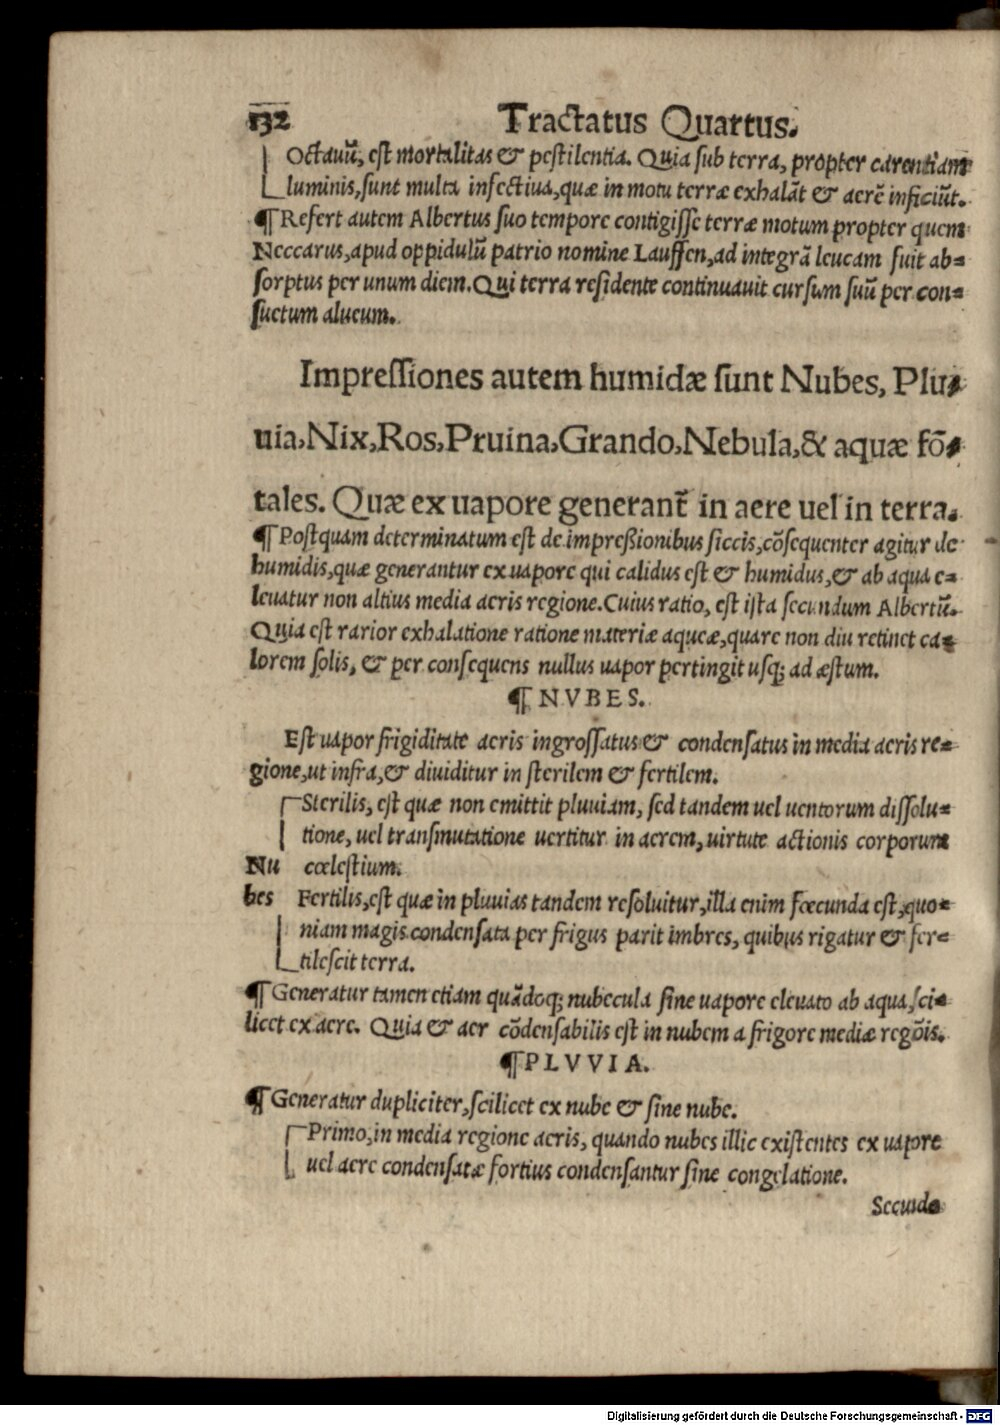 132 Tractatus Quartus.
Octauũ, est mortalitas & pestilentia. Quia sub terra, propter carentiam
luminis, sunt multa infectiua, quæ in motu terræ exhalãt & aerẽ inficiũt.
¶ Refert autem Albertus suo tempore contigisse terræ motum propter quem
Neccarus, apud oppidulũ patrio nomine Lauffen, ad integrã leucam fuit ab=
sorptus per unum diem. Qui terra residente continuauit cursum suũ per con=
suetum alueum.
Impressiones autem humidæ sunt Nubes, Plu-
uia, Nix, Ros, Pruina, Grando, Nebula, & aquæ fõ-
tales. Quæ ex uapore generant̃ in aere uel in terra.
¶ Postquam determinatum est de impreßionibus siccis, cõsequenter agitur de
humidis, quæ generantur ex uapore qui calidus est & humidus, & ab aqua e=
leuatur non altius media aeris regione. Cuius ratio, est ista secundum Albertũ.
Quia est rarior exhalatione ratione materiæ aqueæ, quare non diu retinet ca=
lorem solis, & per consequens nullus uapor pertingit usq; ad æstum.
¶ NVBES.
Est uapor frigiditate aeris ingrossatus & condensatus in media aeris re=
gione, ut infra, & diuiditur in sterilem & fertilem.
Sterilis, est quæ non emittit pluuiam, sed tandem uel uentorum dissolu=
tione, uel transmutatione uertitur in aerem, uirtute actionis corporum
Nu cœlestium.
bes Fertilis, est quæ in pluuias tandem resoluitur, illa enim fœcunda est, quo=
niam magis condensata per frigus parit imbres, quibus rigatur & fer=
tilescit terra.
¶ Generatur tamen etiam quãdoq; nubecula sine uapore eleuato ab aqua, sci=
licet ex aere. Quia & aer cõdensabilis est in nubem a frigore mediæ regõis.
¶ PLVVIA.
¶ Generatur dupliciter, scilicet ex nube & sine nube.
Primo, in media regione aeris, quando nubes illic existentes ex uapore
uel aere condensatæ fortius condensantur sine congelatione.
Secundo
Digitalisierung gefördert durch die Deutsche Forschungsgemeinschaft - DFG